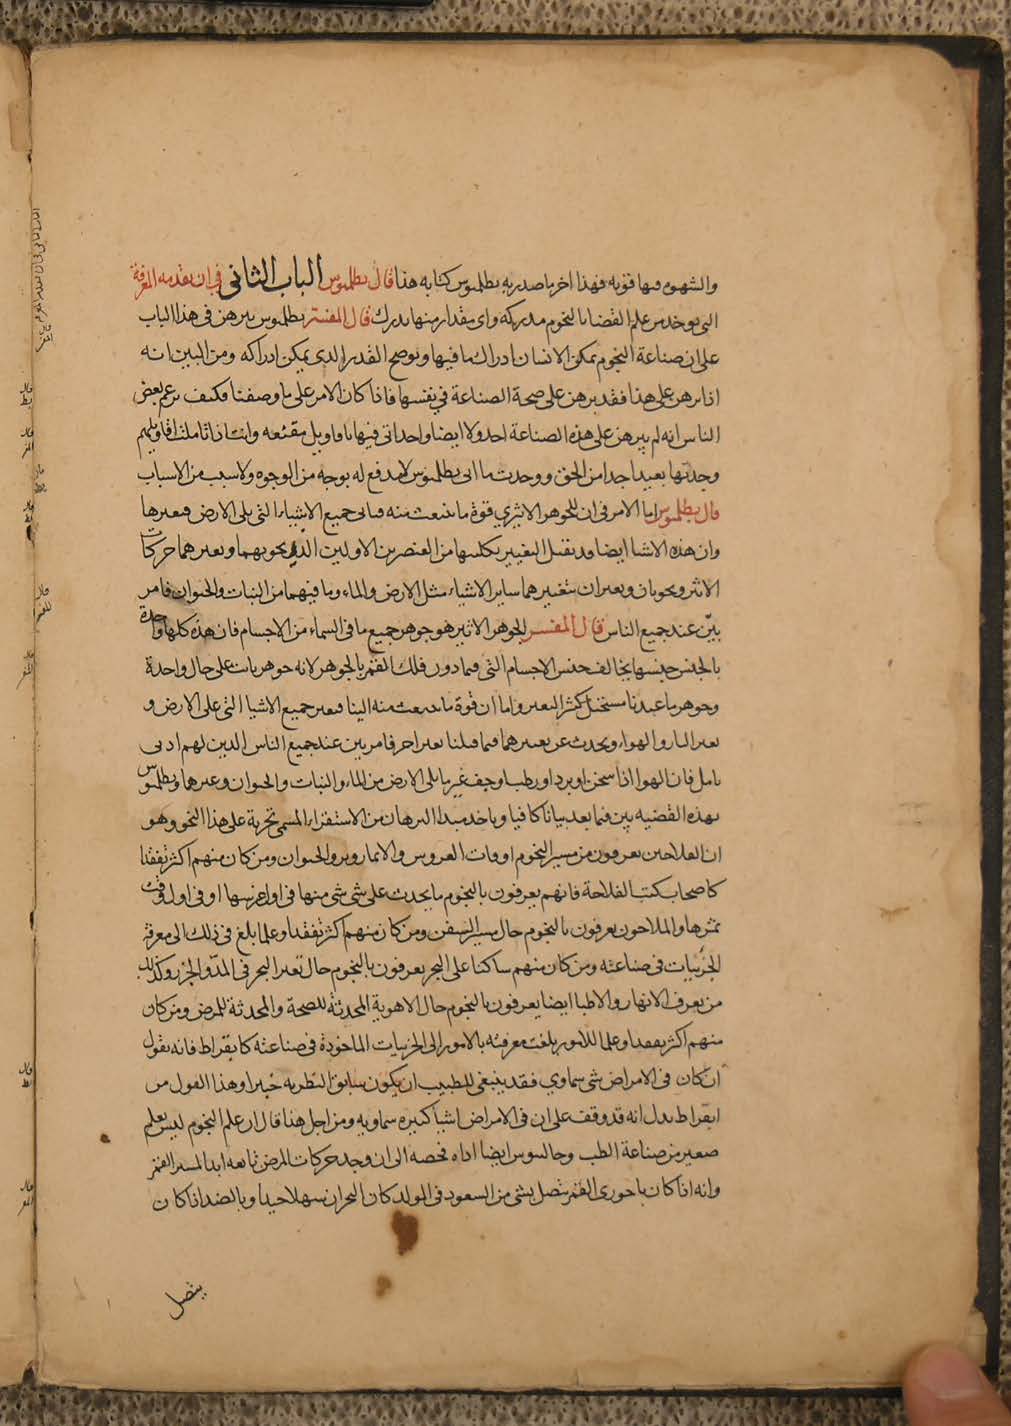 والشهوه فيها قويه فهذا اخر ما صدر به بطلميوس كتابه هذا قال بطلميوس الباب الثاني في ان تقدمه المعرفة
التي توخد من علم القضايا بالنجوم مدركه واي مقدار منها يدرك قال المفسر بطلميوس يبرهن في هذا الباب
على ان صناعة النجوم يمكن الانسان ادراك ما فيها ويوضح القدر الذي يمكن ادراكه ومن البين انه
اذا برهن على هذا فقد برهن على صحة الصناعة في نفسها فاذا كان الامر على ما وصفنا فكيف يزعم بعض
الناس انه لم يبرهن على هذه الصناعة احد ولا ايضا واحد اتى فيها باقاويل مقنعه وانت اذا تاملت اقاويلهم
وجدتها بعيدا جدا من الحق ووجدت ما اتى بطلميوس لا مدفع له بوجه من الوجوه ولا سبب من الاسباب
قال بطلميوس اما الامر في ان للجوهر الاثيري قوة ما تنبعث منه فتاتى جميع الاشياء التي تلى الارض فتغيرها
وان هذه الاشيا ايضا قد تقبل التغيير بكليتها من العنصرين الاولين الذين يحويهما ويغيرهما حركات
الاثير ويحويان ويغيران بتغيرهما ساير الاشياء مثل الارض والماء وما فيهما من النبات والحيوان فامر
بيّن عند جميع الناس قال المفسر الجوهر الاثير هو جوهر جميع ما في السماء من الاجسام فان هذه كلها واحدة
بالجنس جنسها يخالف جنس الاجسام التي فيما دون فلك القمر بالجوهر لانه جوهر بات على حال واحدة
وجوهر ما عندنا مستحيل كثير التغير واما ان قوة ما تنبعث منه الينا فيغير جميع الاشيا التي على الارض و
تغير النار والهواء ويحدث عن تغيرهما فيما قبلنا تغير اخر فامر بين عند جميع الناس الذين لهم ادنى
تامل فان الهوا اذا سخن او برد او رطب او جف غير ما يلى الارض من الماء والنبات والحيوان وغيرها وبطلميوس
بهذه القضيه يبين فيما بعد بيانا كافيا وياخد مبدا البرهان من الاستقراء المسمى تجربة على هذا النحو وهو
ان الفلاحين يعرفون من مسير النجوم اوقات الغروس والاثمار وبرو الحيوان ومن كان منهم اكثر تفقدا
كاصحاب كتب الفلاحة فانهم يعرفون بالنجوم ما يحدث على شى شى منها في اول غرسها او في اول وقت
تثمرها والملاحون يعرفون بالنجوم حال مسير السفن ومن كان منهم اكثر تفقدا وعلما بلغ في ذلك الى معرفة
الجزييات في صناعته ومن كان منهم ساكنا على البحر يعرفون بالنجوم حال تغير البحر في المدّ والجزر وكذلك
من يعرف الانهار والاطبا ايضا يعرفون بالنجوم حال الاهوية المحدثة للصحة والمحدثة للمرض ومن كان
منهم اكثر تفقدا وعلما للامور بلغت معرفته بالامور الى الجزييات الماخوذة في صناعته كابقراط فانه يقول
ان كان في الامراض شى سماوي فقد ينبغي للطبيب ان يكون سابق النظر به خبيرا وهذا القول من
ابقراط يدل انه قد وقف على ان في الامراض اشيا كثيره سماويه ومن اجل هذا قال ان علم النجوم ليس بعلم
صغير من صناعة الطب وجالينوس ايضا اداه فحصه الى ان وجد حركات المرض تابعه ابدا لمسير القمر
وانه اذا كان باحوري القمر يتصل بشى من السعود في المولد كان البحران سهلا جيدا وبالضد اذا كان
يتصل